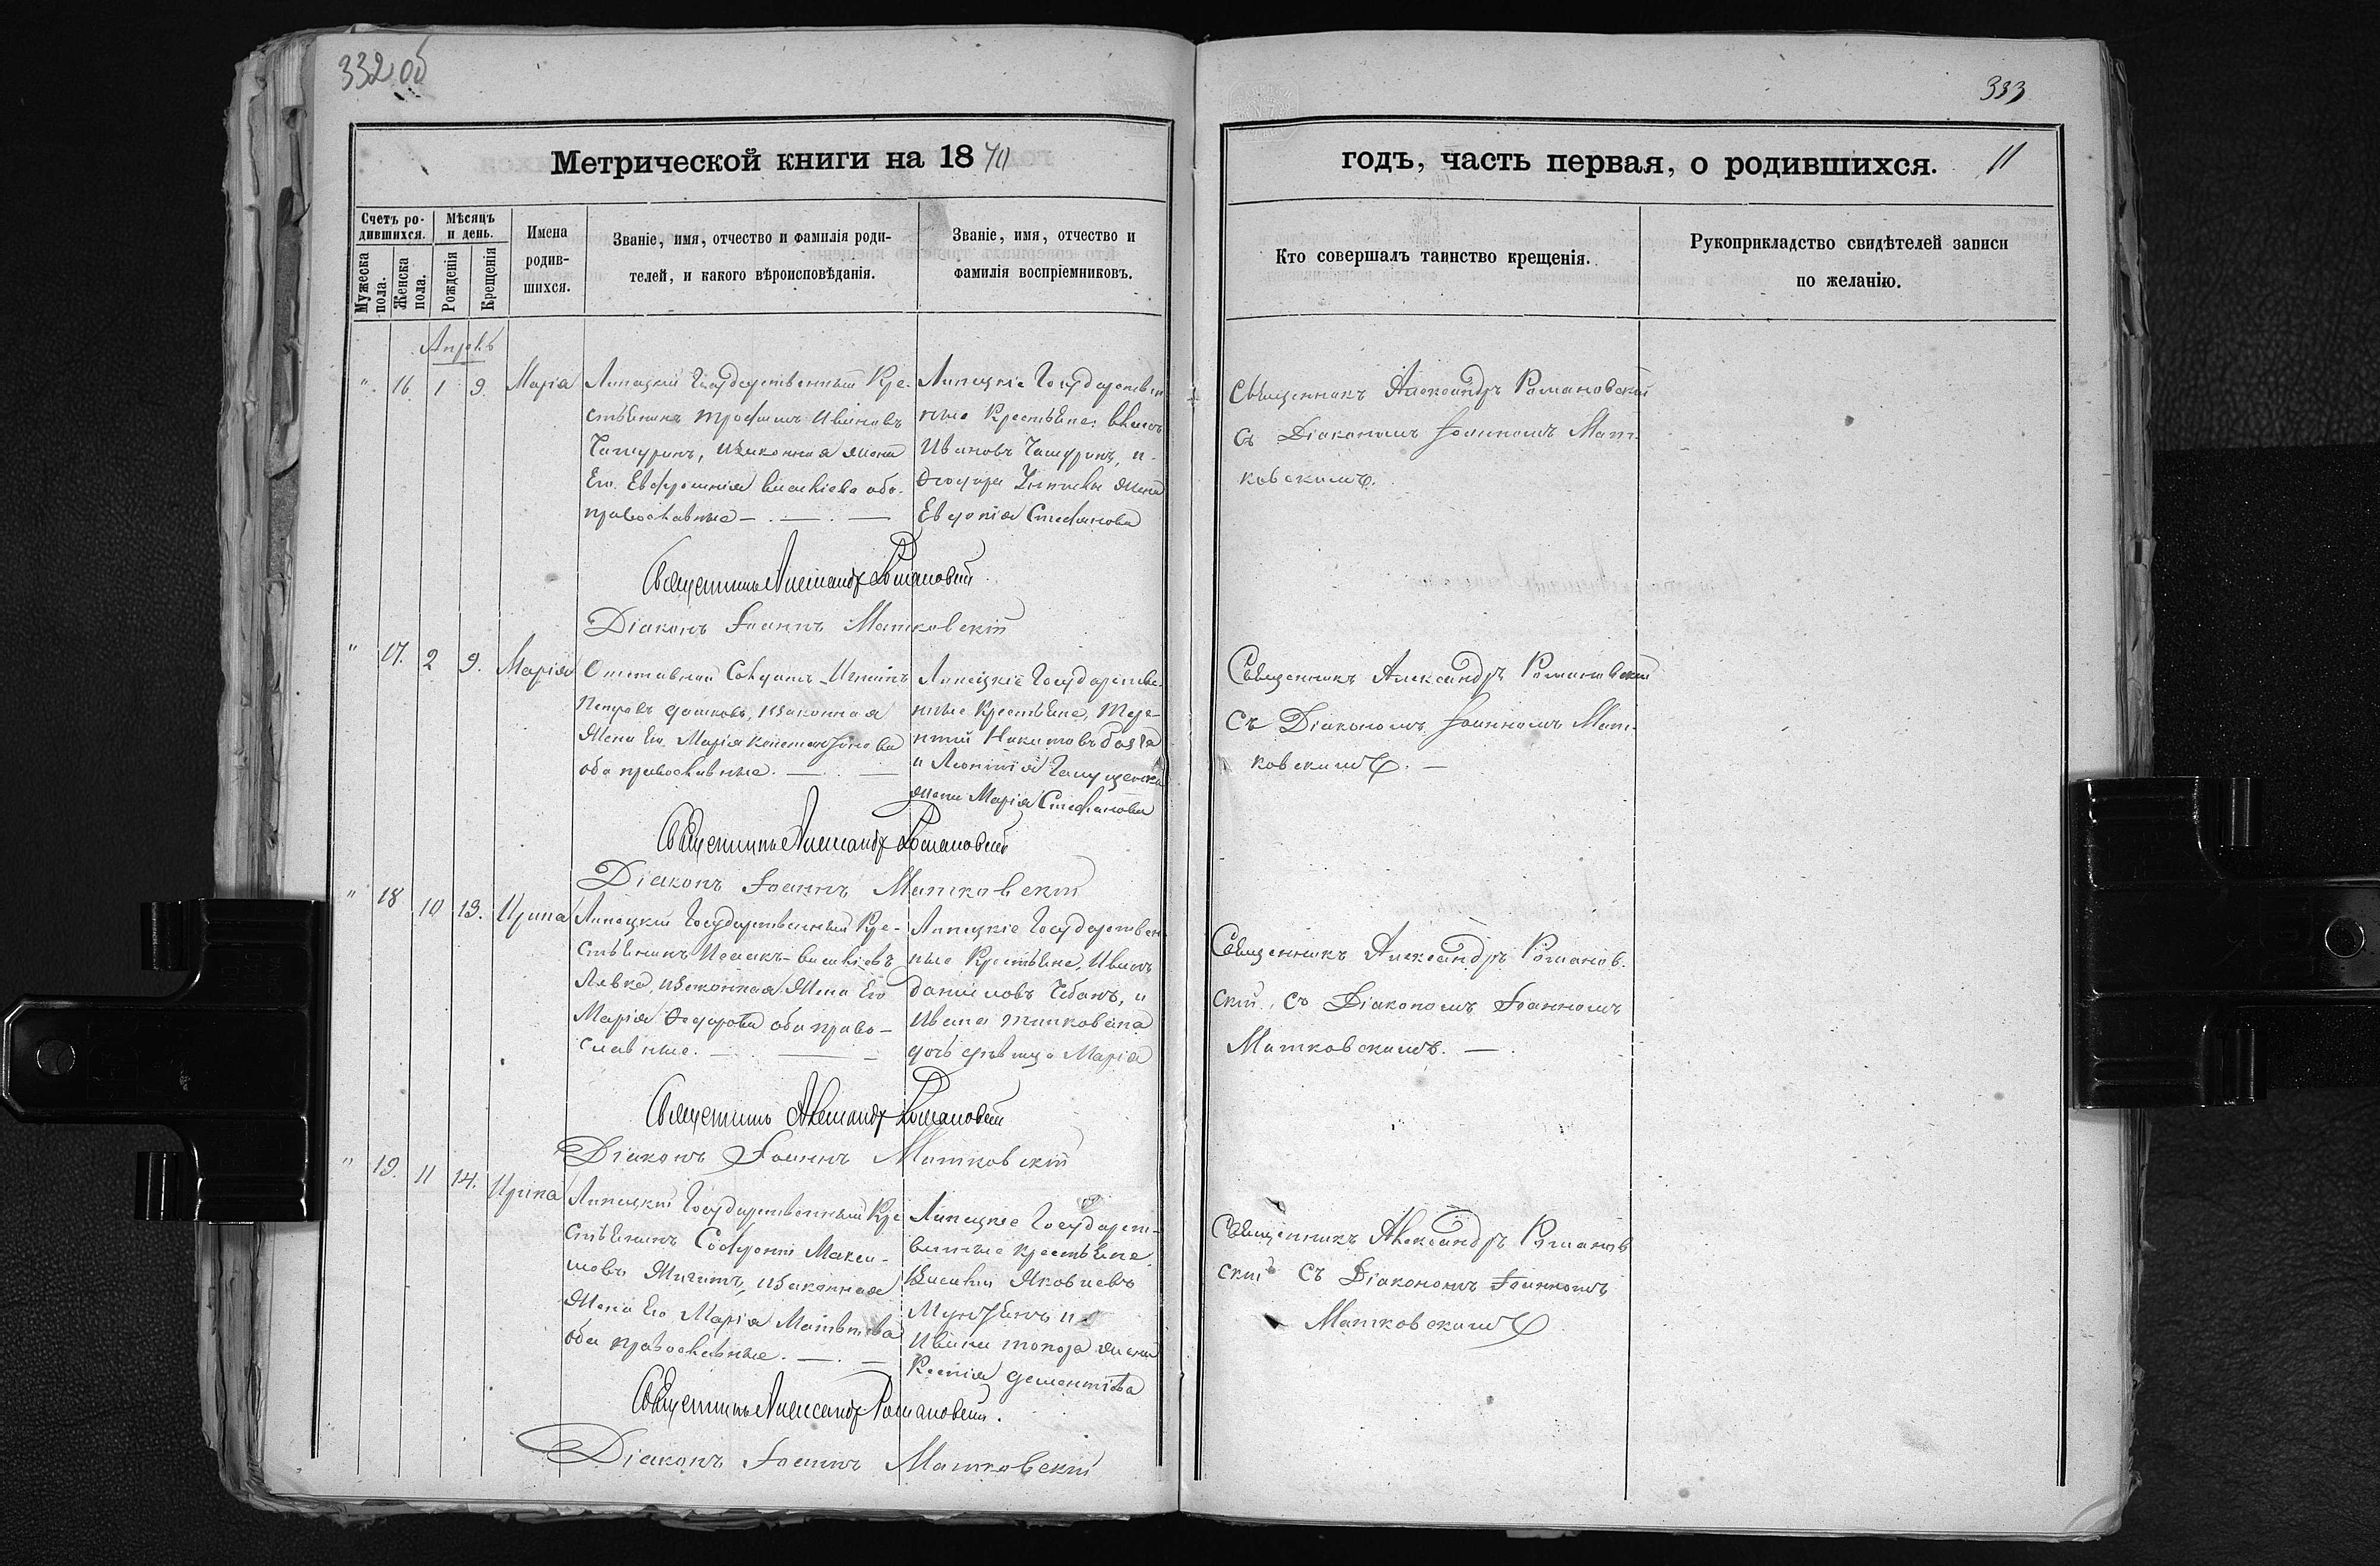 332 об
333
Метрической книги на 1870
годъ, часть первая, о родившихся. 11
Счетъ ро-
дившихся.
Мужеска
пола.
Женска
пола.
Мѣсяцъ
и день.
Рожденія
Крещенія
Имена
родив-
шихся.
Званіе, имя, отчество и фамилія роди-
телей, и какого вѣроисповѣданія.
Званіе, имя, отчество и
фамилія воспріемниковъ.
Кто совершалъ таинство крещенія.
Рукоприкладство свидѣтелей записи
по желанію.
" 16 1 9 Марія
Липецкій Государственный Кре-
стьянинъ Трофимъ Ивановъ
изаконная жена
Его Евфросинія Василіева оба
православные
Липецкіе Государствен
ные Крестьяне:
Ивановъ и
Ѳеодора жена
Евдокія Стефанова
Священникъ Александръ Романовскій
Съ Діакономъ Іоанномъ Мат-
ковскимъ.
Священникъ Александръ Романовскій
Діаконъ Іоаннъ Матковскій
" 17. 2 9. Марія
Отставной Солдатъ Игнатъ
Петровъ изаконная
Жена Его Марія Константинова
оба православные.
Липецкіе Государстве-
нные Крестьяне, Тере-
нтій
и
жена Марія Стефанова
Священникъ Александръ Романовскій
Съ Діакономъ Іоанномъ Мат-
ковскимъ.
Священникъ Александръ Романовскій
Діаконъ Іоаннъ Матковскій
" 18 10 13. Ирина
Липецкій Государственный Кре-
стьянинъ Исаакъ Василіевъ
изаконная Жена Его
Марія Ѳеодорова оба право-
славные.
Липецкіе Государствен
ные Крестьяне, Иванъ
Даниловъ Чебанъ, и
Ивана
дочь дѣвица Марія
Священникъ Александръ Романов-
скій, съ Діакономъ Іоанномъ
Матковскимъ.
Священникъ Александръ Романовскій
Діаконъ Іоаннъ Матковскій
" 19. 11 14. Ирина
Липецкій Государственный Кре
стьянинъ Софроній Макси-
мовъ изаконная
Жена Его Марія Матвѣева
оба православные.
Липецкіе Государст-
венные крестьяне
Василій Яковлевъ
и
Ивана жена
Ксенія Дементіева
Священникъ Александръ Романов
скій съ Діакономъ Іоанномъ
Матковскимъ
Священникъ Александръ Романовскій.
Діаконъ Іоаннъ Матковскій